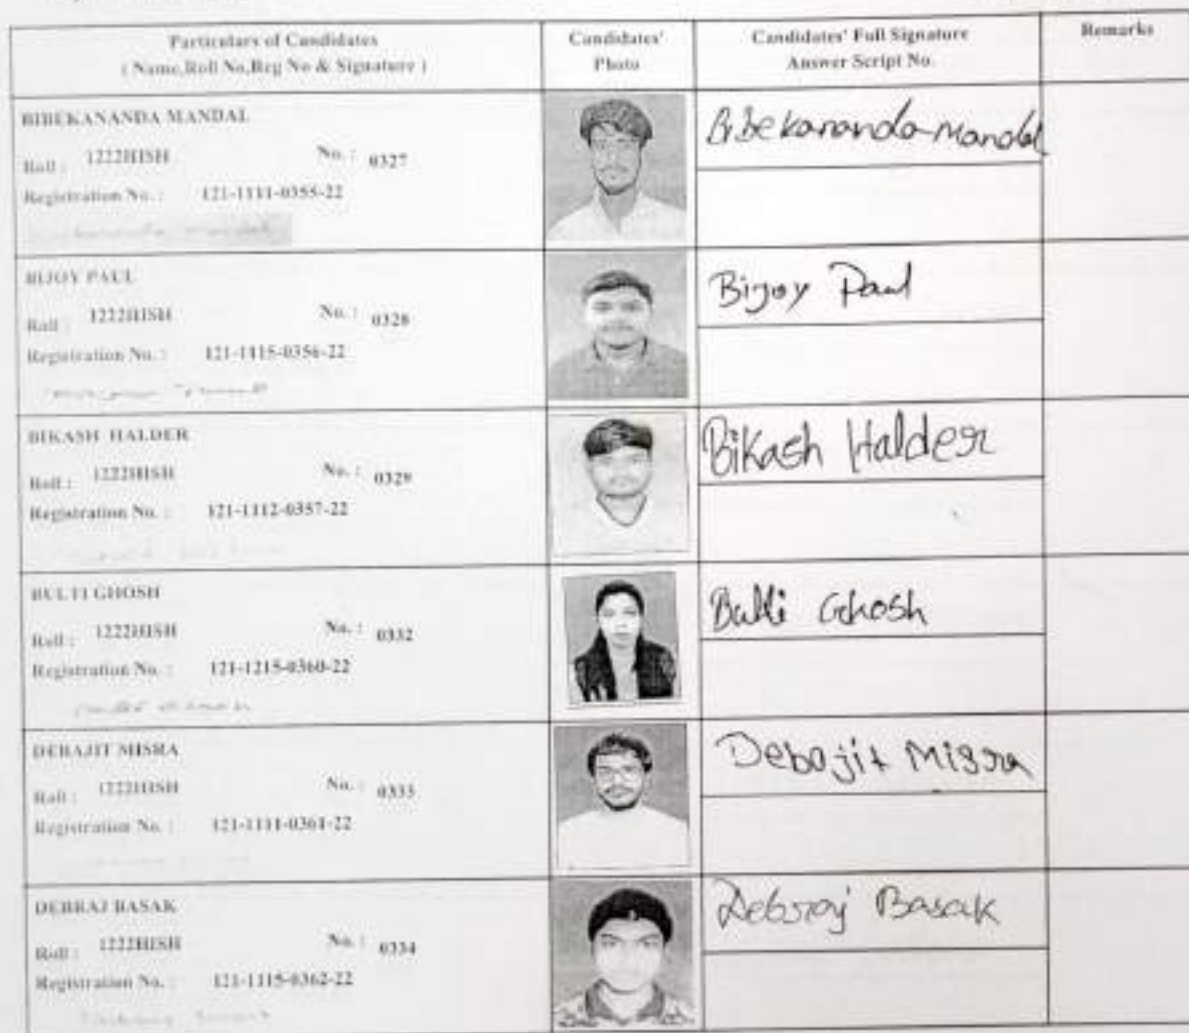 Particulars of Candidates
( Name,Roll No,Reg No & Signature )
Candidates'
Photo
Candidates' Full Signature
Answer Script No.
Remarks
BIBEKANANDA MANDAL
Roll : 1222HISH No. : 0327
Registration No. : 121-1111-0355-22
Bibekananda Mandal
BIJOY PAUL
Roll : 1222HISH No. : 0328
Registration No. : 121-1115-0356-22
Bijoy Paul
BIKASH HALDER
Roll : 1222HISH No. : 0329
Registration No. : 121-1112-0357-22
Bikash Halder
BULTI GHOSH
Roll : 1222HISH No. : 0332
Registration No. : 121-1215-0360-22
Bulti Ghosh
DEBAJIT MISRA
Roll : 1222HISH No. : 0333
Registration No. : 121-1111-0361-22
Debajit Misra
DEBRAJ BASAK
Roll : 1222HISH No. : 0334
Registration No. : 121-1115-0362-22
Debraj Basak